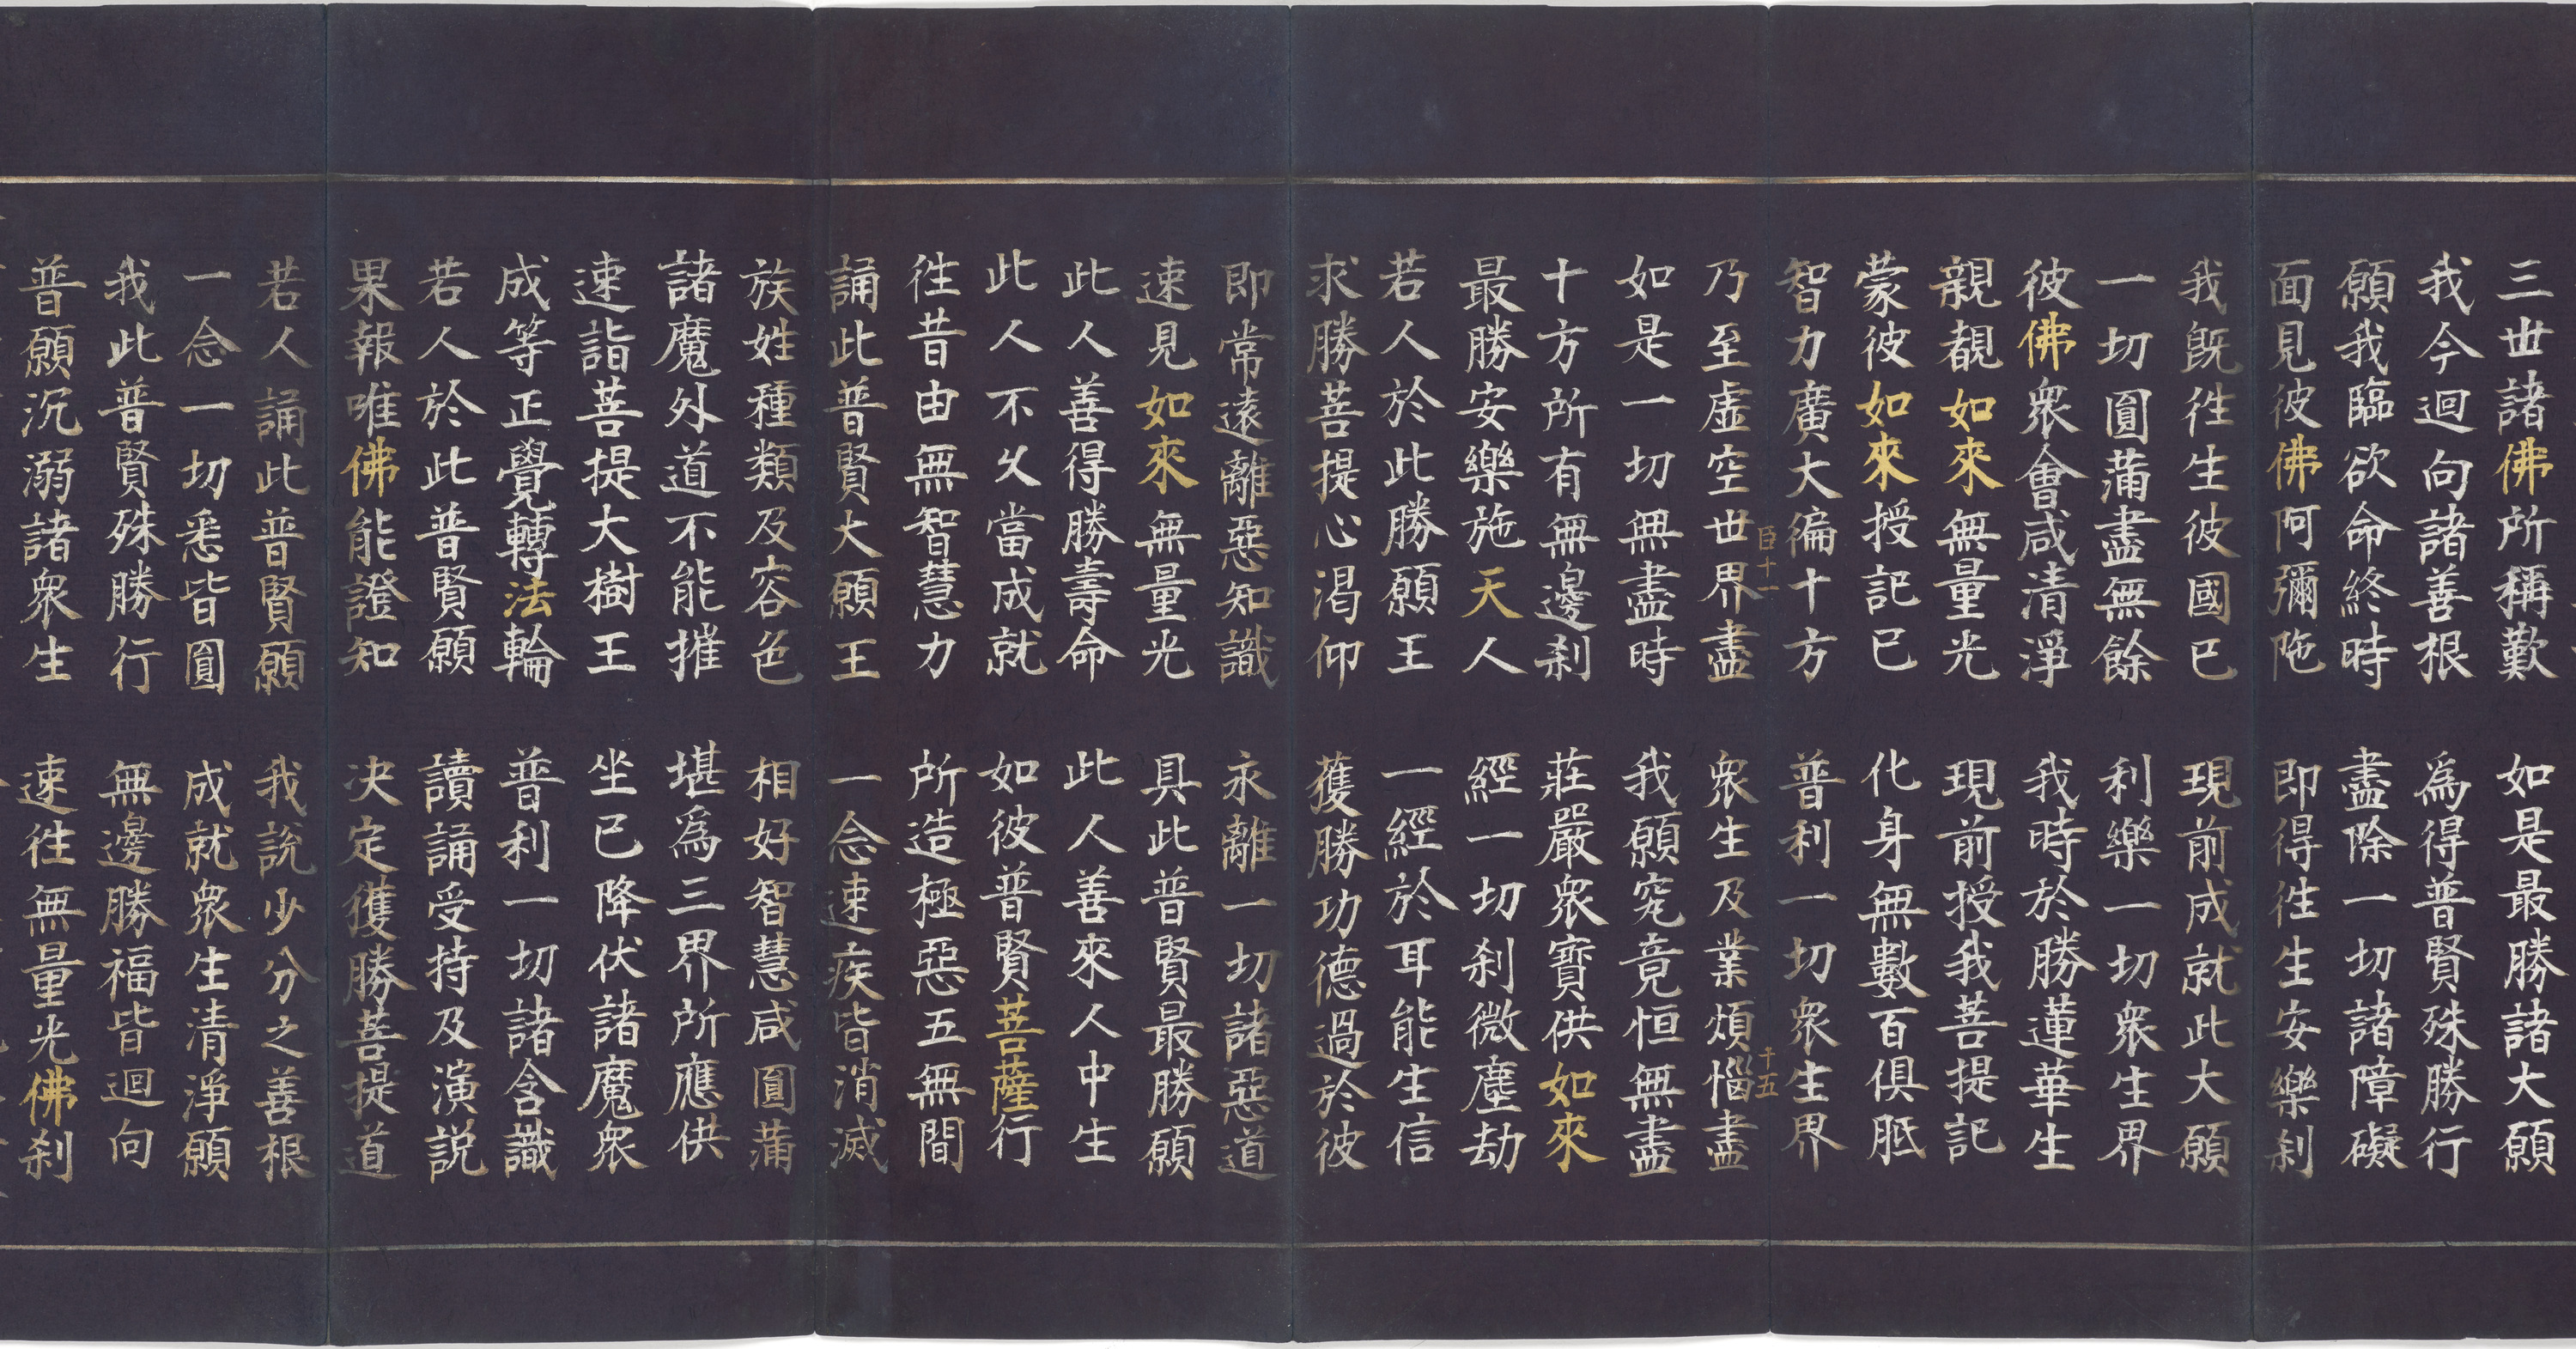 三世諸佛所稱歎 如是最勝諸大願
我今迴向諸善根 爲得普賢殊勝行
願我臨欲命終時 盡除一切諸障礙
面見彼佛阿彌陁 即得徃生安樂刹
我既徃生彼國已 現前成就此大願
一切圓滿盡無餘 利樂一切衆生界
彼佛衆會咸清淨 我時於勝蓮華生
親覩如來無量光 現前授我菩提記
蒙彼如來授記已 化身無數百俱胝
智力廣大徧十方 普利一切衆生界
臣十一 十五
乃至虛空世界盡 衆生及業煩惱盡
如是一切無盡時 我願究竟恒無盡
十方所有無邊刹 莊嚴衆寶供如來
最勝安樂施天人 經一切刹微塵劫
若人於此勝願王 一經於耳能生信
求勝菩提心渴仰 獲勝功德過於彼
即常遠離惡知識 永離一切諸惡道
速見如來無量光 具此普賢最勝願
此人善得勝壽命 此人善來人中生
此人不乆當成就 如彼普賢菩薩行
徃昔由無智慧力 所造極惡五無間
誦此普賢大願王 一念速疾皆消滅
族姓種類及容色 相好智慧咸圓滿
諸魔外道不能摧 堪爲三界所應供
速詣菩提大樹王 坐已降伏諸魔衆
成等正覺轉法輪 普利一切諸含識
若人於此普賢願 讀誦受持及演説
果報唯佛能證知 决定獲勝菩提道
若人誦此普賢願 我説少分之善根
一念一切悉皆圓 成就衆生清淨願
我此普賢殊勝行 無邊勝福皆迴向
普願沉溺諸衆生 速徃無量光佛刹